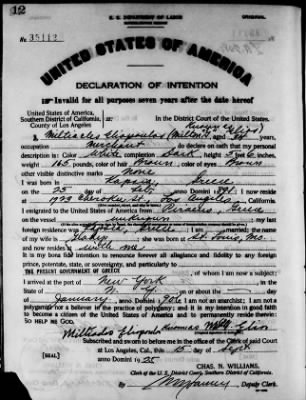 12
U. S. DEPARTMENT OF LABOR
ORIGINAL
No. 35112
UNITED STATES OF AMERICA
DECLARATION OF INTENTION
Invalid for all purposes seven years after the date hereof
United States of America,
Southern District of California, ss:
County of Los Angeles
In the District Court of the United States.
I, Miltiades Eliopoulos aged years,
occupation Merchant do declare on oath that my personal
description is: Color White complexion Dark height 5 feet 6 inches,
weight 165 pounds, color of hair Brown color of eyes Brown
other visible distinctive marks None
I was born in Greece
on the 25 day of anno Domini I now reside
at 1922 Cherokee Los Angeles, California.
I emigrated to the United States of America from Piraeus, Greece
on the vessel unknown my last
foreign residence was Greece I am married; the name
of my wife is Gladys she was born at St. Louis, Mo.
and now resides with me
It is my bona fide intention to renounce forever all allegiance and fidelity to any foreign
prince, potentate, state, or sovereignty, and particularly to
THE PRESENT GOVERNMENT OF GREECE of whom I am now a subject;
I arrived at the port of New York in the
State of N. Y. on or about the day
of January anno Domini I am not an anarchist; I am not a
polygamist nor a believer in the practice of polygamy; and it is my intention in good faith
to become a citizen of the United States of America and to permanently reside therein:
SO HELP ME GOD.
Subscribed and sworn to before me in the office of the Clerk of said Court
at Los Angeles, Cal., this 15 day of Sept
[SEAL] anno Domini 1925
CHAS. N. WILLIAMS,
Clerk of the U. S. District Court, Southern District of California.
By Deputy Clerk.